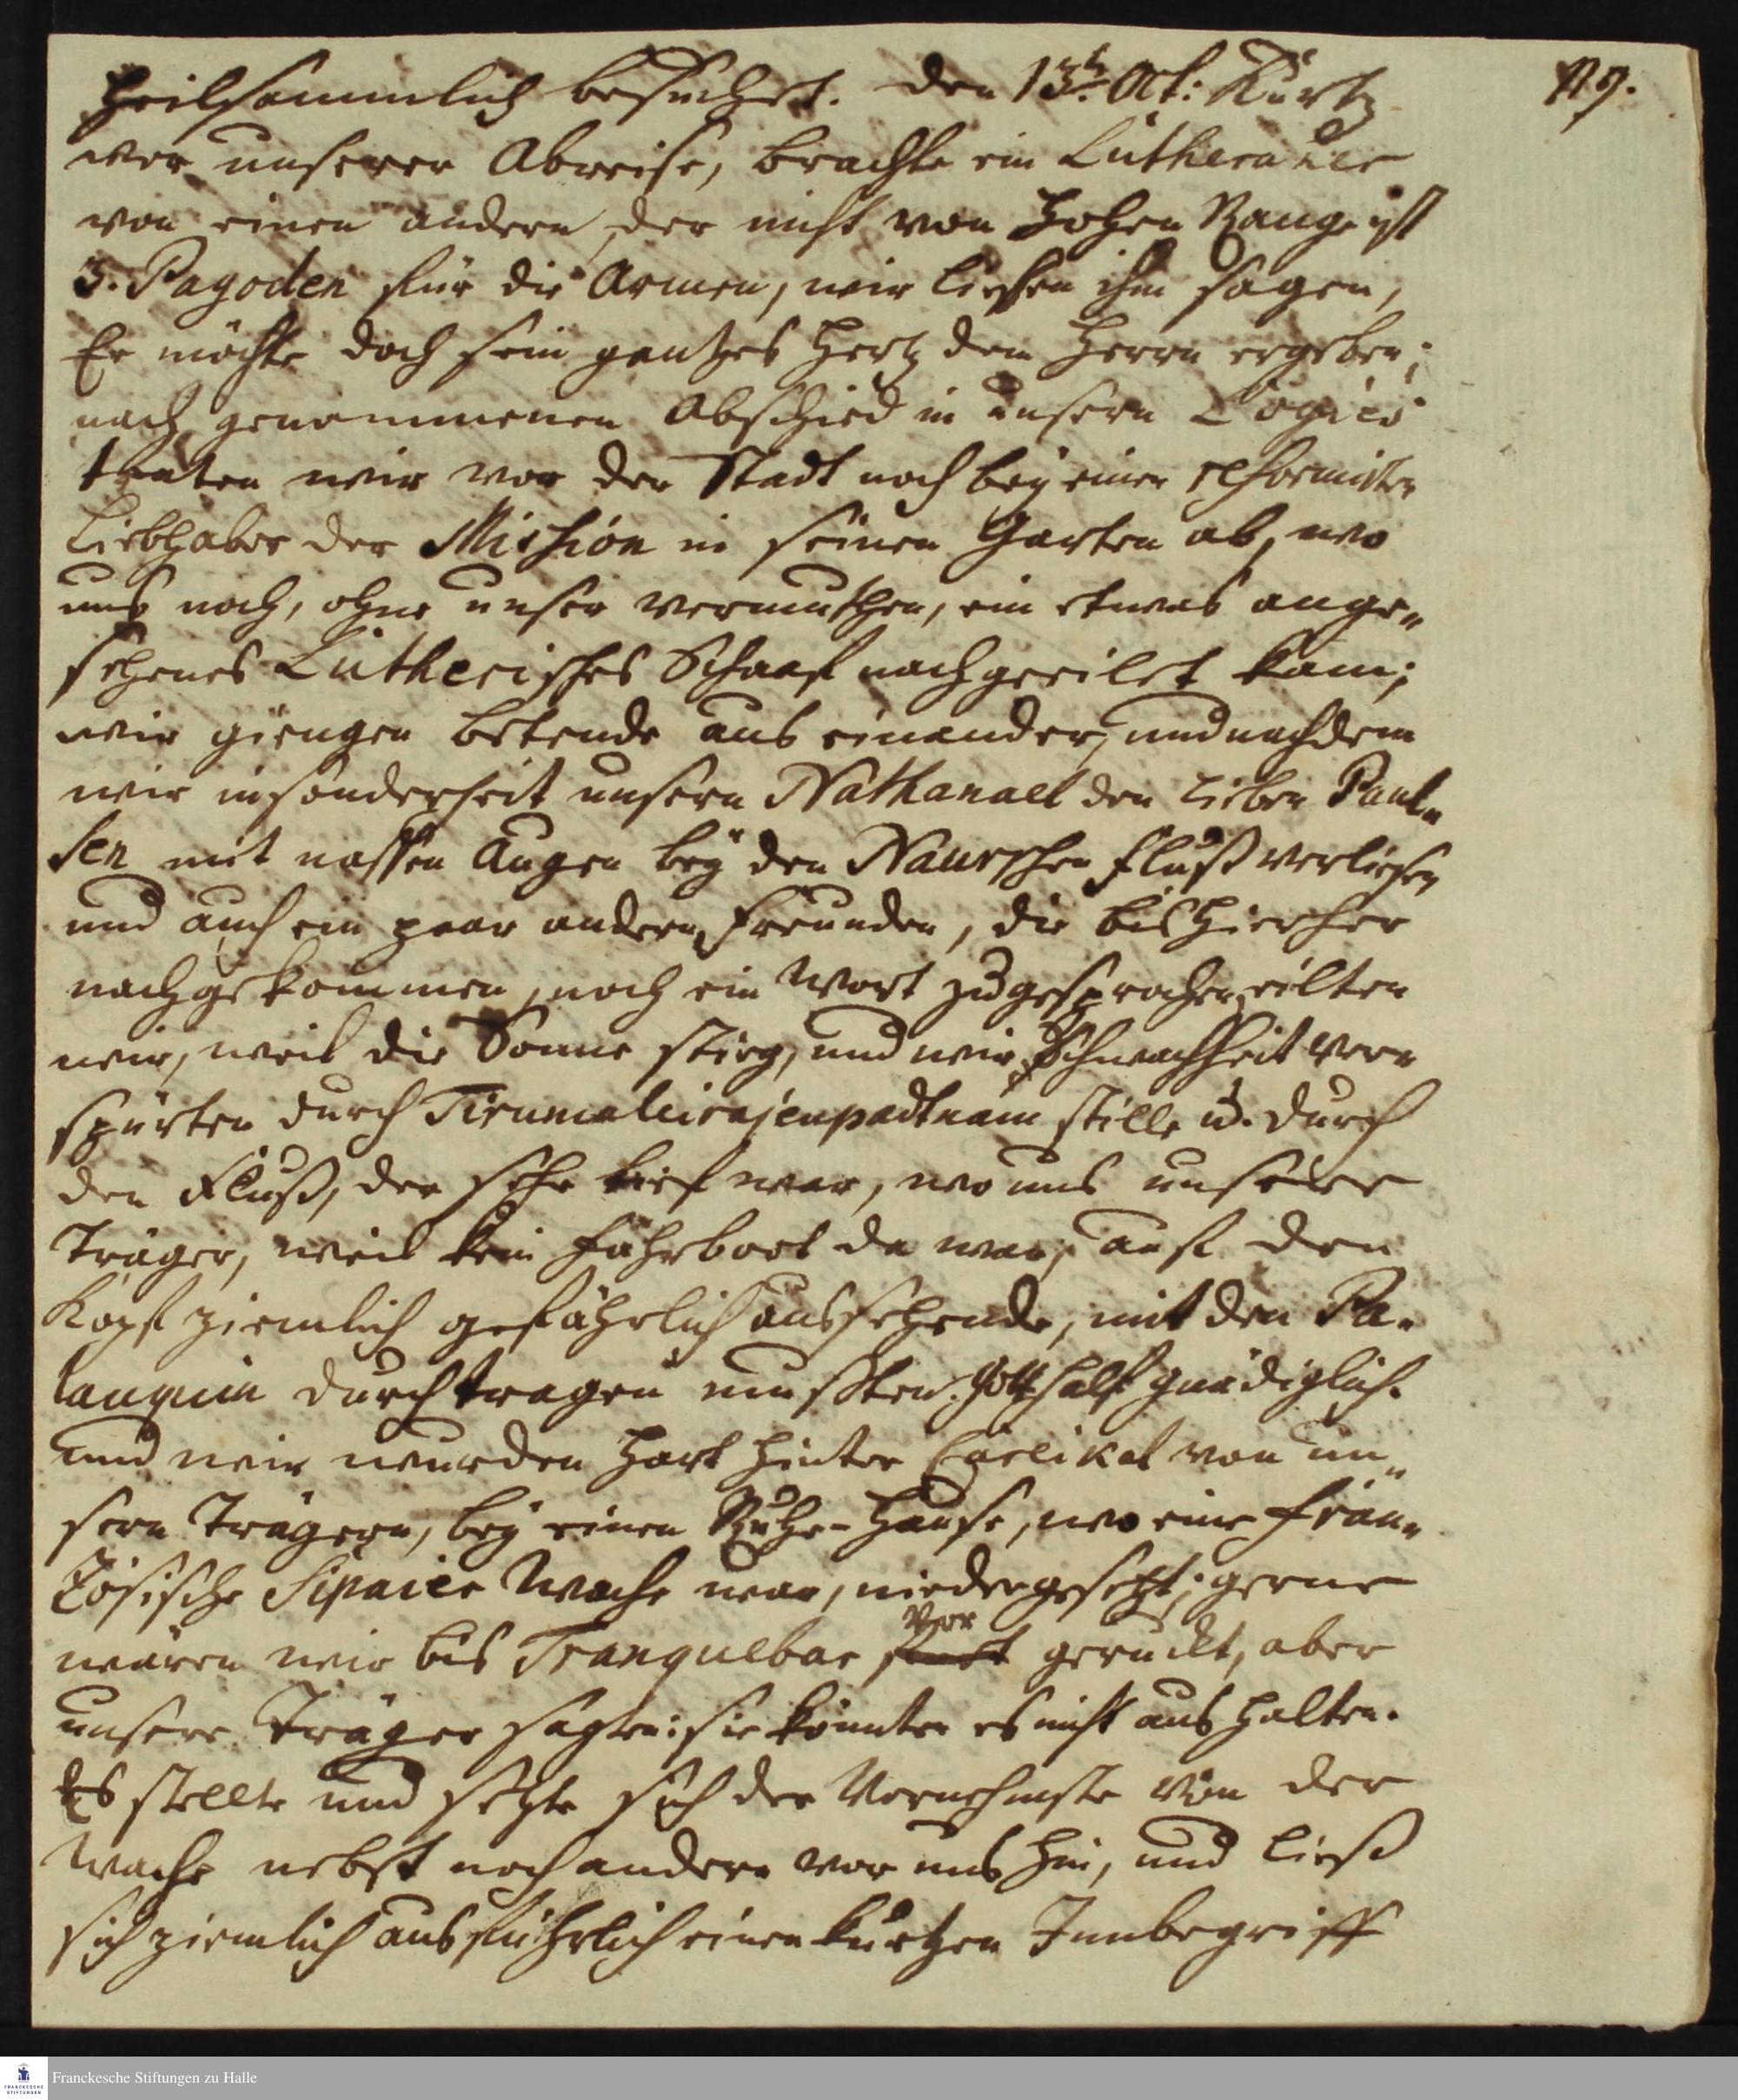 heilsammlich besuchet. den 13t. Oct: Kurtz
vor unserer Abreise, brachte ein Lutheraner
von einen andern, der nicht von hohen Range ist
3. Pagoden für die Armen, wir liessen ihm sagen,
Er möchte doch sein gantzes Hertz dem Herrn ergeben;
nach genommenen Abschied in unsern Logies
traten wir vor der Stadt noch bey einer reformirten
Liebhaber der Mission in seinen Garten ab, wo
uns noch, ohne unser vermuthen, ein etwas ange„
sehenes Lutherisches Schaaf nachgeeilet kam;
wir giengen betende aus einander, und nachdem
wir insonderheit unsern Nathanael den lieben Paul„
sen mit nassen Augen bey den Naurschen Fluß verliesen
und auch ein paar andern Freunden, die bis hierher
nachgekommen, noch ein Wort zugesprochen, eilten
wir, weil die Sonne stieg, und wir Schwachheit ver„
spürten durch Tirumaleirajenpadtnam stille u. durch
den Fluß, der sehr tief war, wo uns unsere
Träger, weil kein Fahrboot da war, auf den
Kopf ziemlich gefährlich aussehende, mit den Pa„
lanquin durchtragen mussten. Gott half gnädiglich.
und wir wurden hart hinter Careikal von un„
sern Trägern, bey einen Ruhe-Hause, wo eine fran„
zösische Sipaier Wache war, niedergesetzt; gerne
wären wir bis Tranquebar vor gerückt, aber
unsere Träger sagten: sie könnten es nicht aus halten.
Es stellte und setzte sich der Vornehmste von der
Wache nebst noch andern vor uns hin, und ließ
sich ziemlich ausführlich einen kurtzen Innbegriff
Franckesche Stiftungen zu Halle
FRANCKESCHE
STIFTUNGEN